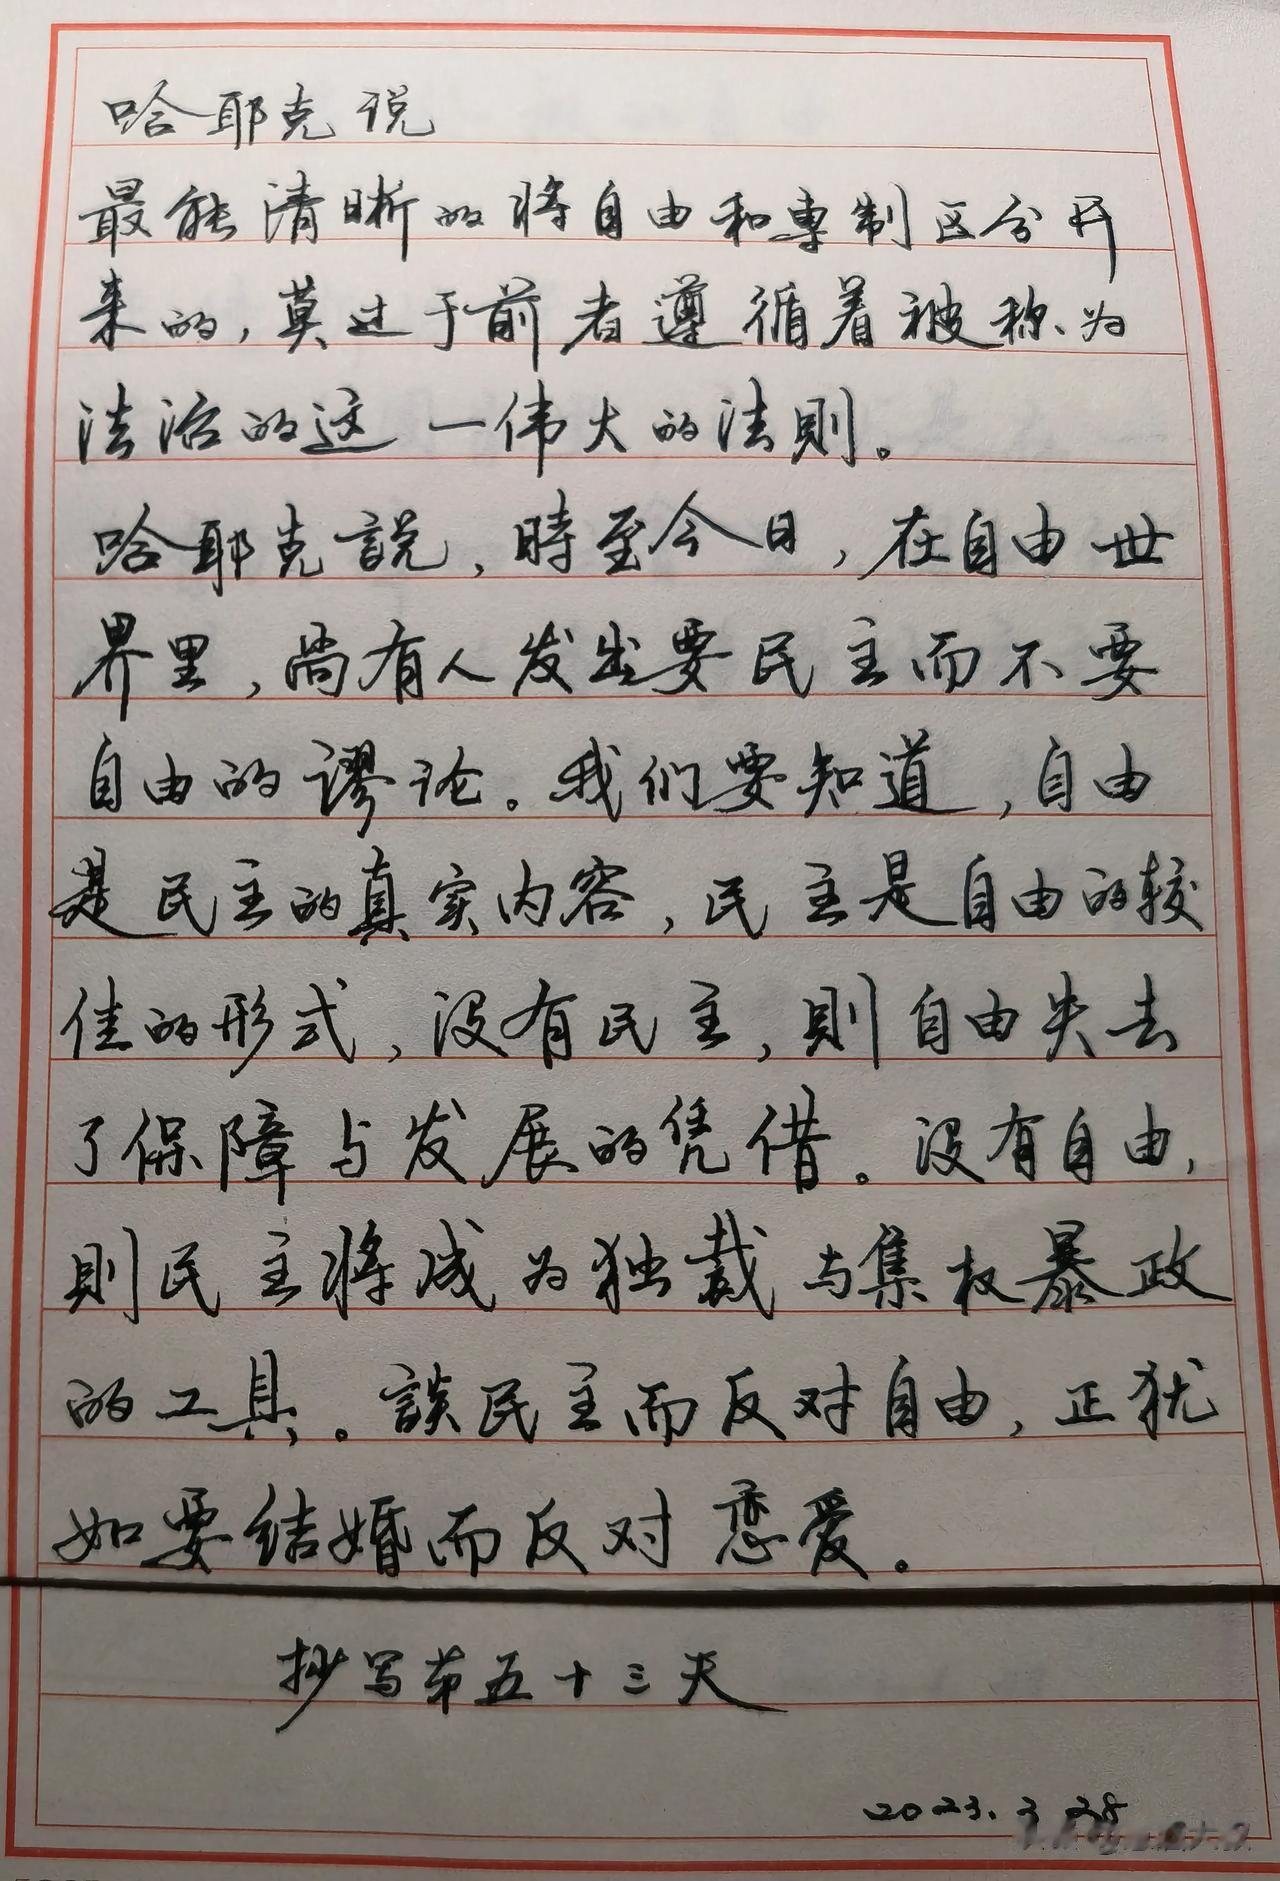 哈耶克说
最能清晰的将自由和專制区分开
来的,莫过于前者遵循着被称为
法治的这一伟大的法則。
哈耶克說,時至今日,在自由世
界里,尚有人发出要民主而不要
自由的谬论。我们要知道,自由
是民主的真实内容,民主是自由的较
佳的形式,没有民主,則自由失去
了保障与发展的凭借。没有自由,
則民主将成为独裁与集权暴政
的工具。談民主而反对自由,正犹
如要结婚而反对恋爱。
抄写第五十三天
2023.3.28